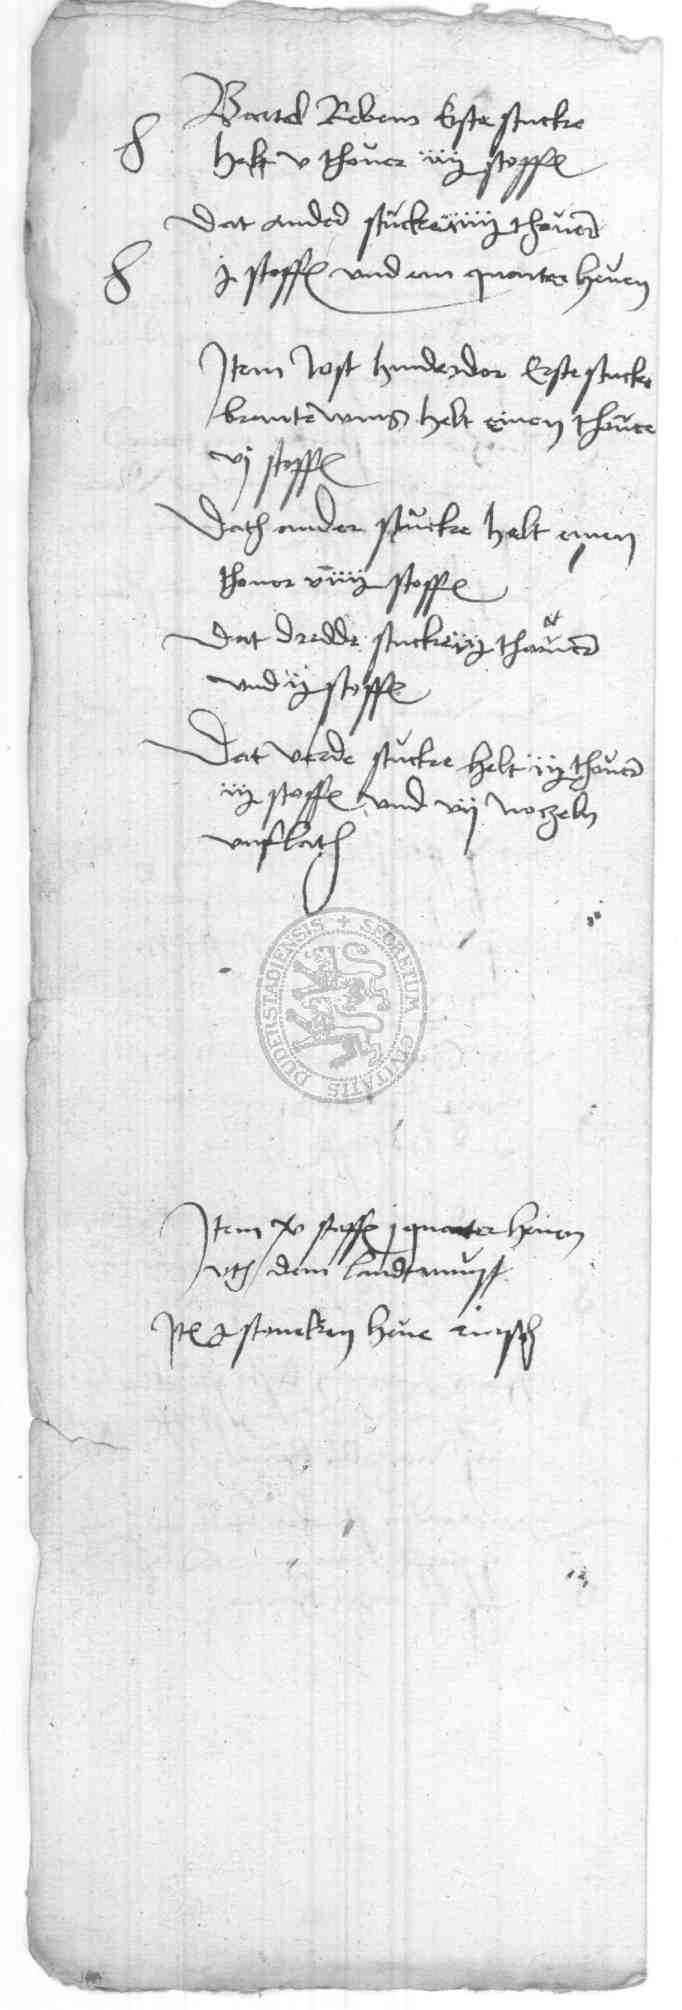 Bartel Rebens Erste stucke
helt v thover iiij stoffe
Dat ander stucke iiij thover
j stoffe vnd ein quarter heuen
Item Jost hinderdor Erste stucke
brantewins helt einen thover
vj stoffe
Dath ander stucke helt einen
thover viiij stoffe
Dat dredde stucke iij thover
vnd ij stoffe
Dat verde stucke helt iij thover
iij stoffe vnd vij noczeln
vnflath
SECRETUM CIVITATIS DUDERSTADIENSIS
Item xv stoffe j quarter heuen
vth dem
heue